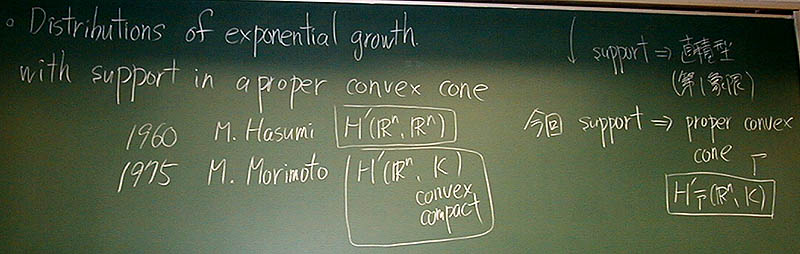 。Distributions of exponential growth.
with support in a proper convex cone
1960 M. Hasumi H'(ℝⁿ, ℝⁿ)
1975 M. Morimoto H'(ℝⁿ, K)
convex
compact
↓ support ⇒ 直積型
(第1象限)
今回 support ⇒ proper convex
cone Γ
H'_Γ̅(ℝⁿ, K)